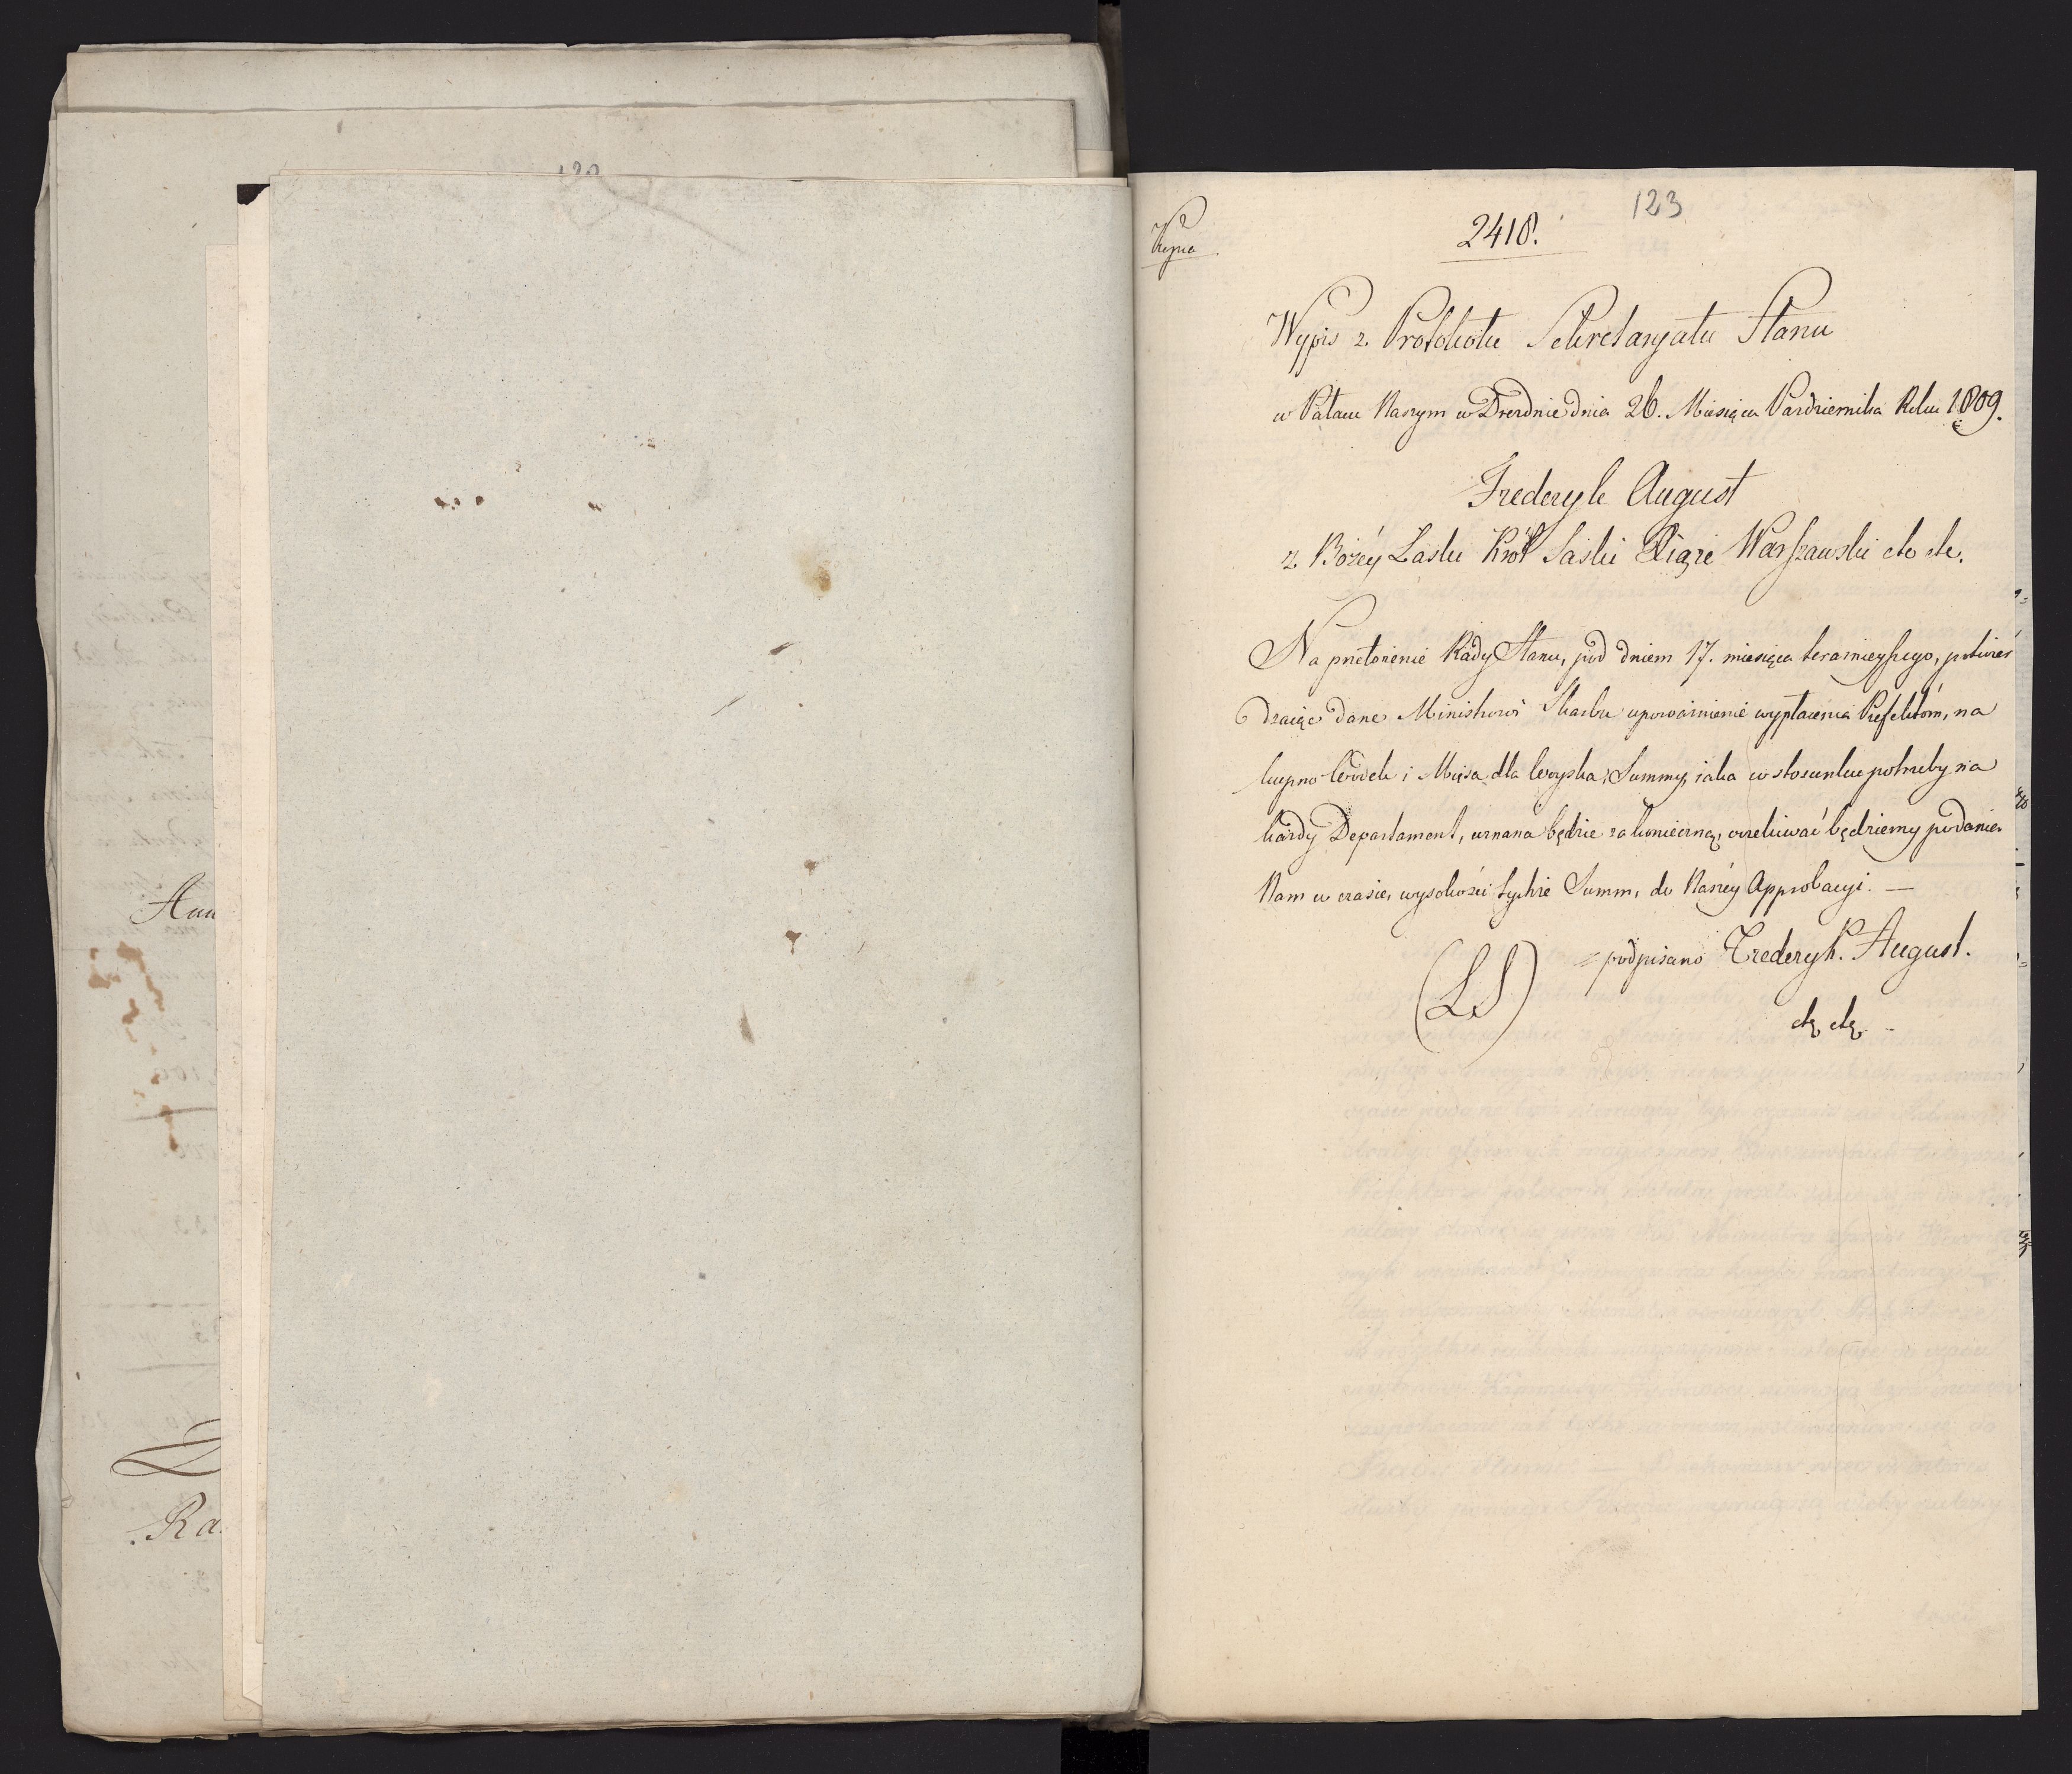 123
Kopia
2418.
Wypis z Protokołu Sekretaryatu Stanu
w Pałacu Naszym w Dreznie dnia 26. Miesiąca Pazdziernika Roku 1809.
Frederyk August
z Bożéy Łaski Król Saski Xiąże Warszawski etc etc.
Na przełożenie Rady Stanu, pod dniem 17. miesiąca teraznieyszego, potwier
dzaiąc dane Ministrowi Skarbu upoważnienie wypłacenia Prefektom, na
kupno i Mięsa dla woyska, Summy, iaka w stosunku potrzeby na
każdy Departament, uznana będzie za konieczną, oczekiwać będziemy podanie
Nam w czasie, wysokości tychże Summ, do Naszéy Approbacyi. —
(LS)
podpisano Frederyk August.
etc etc
Ra